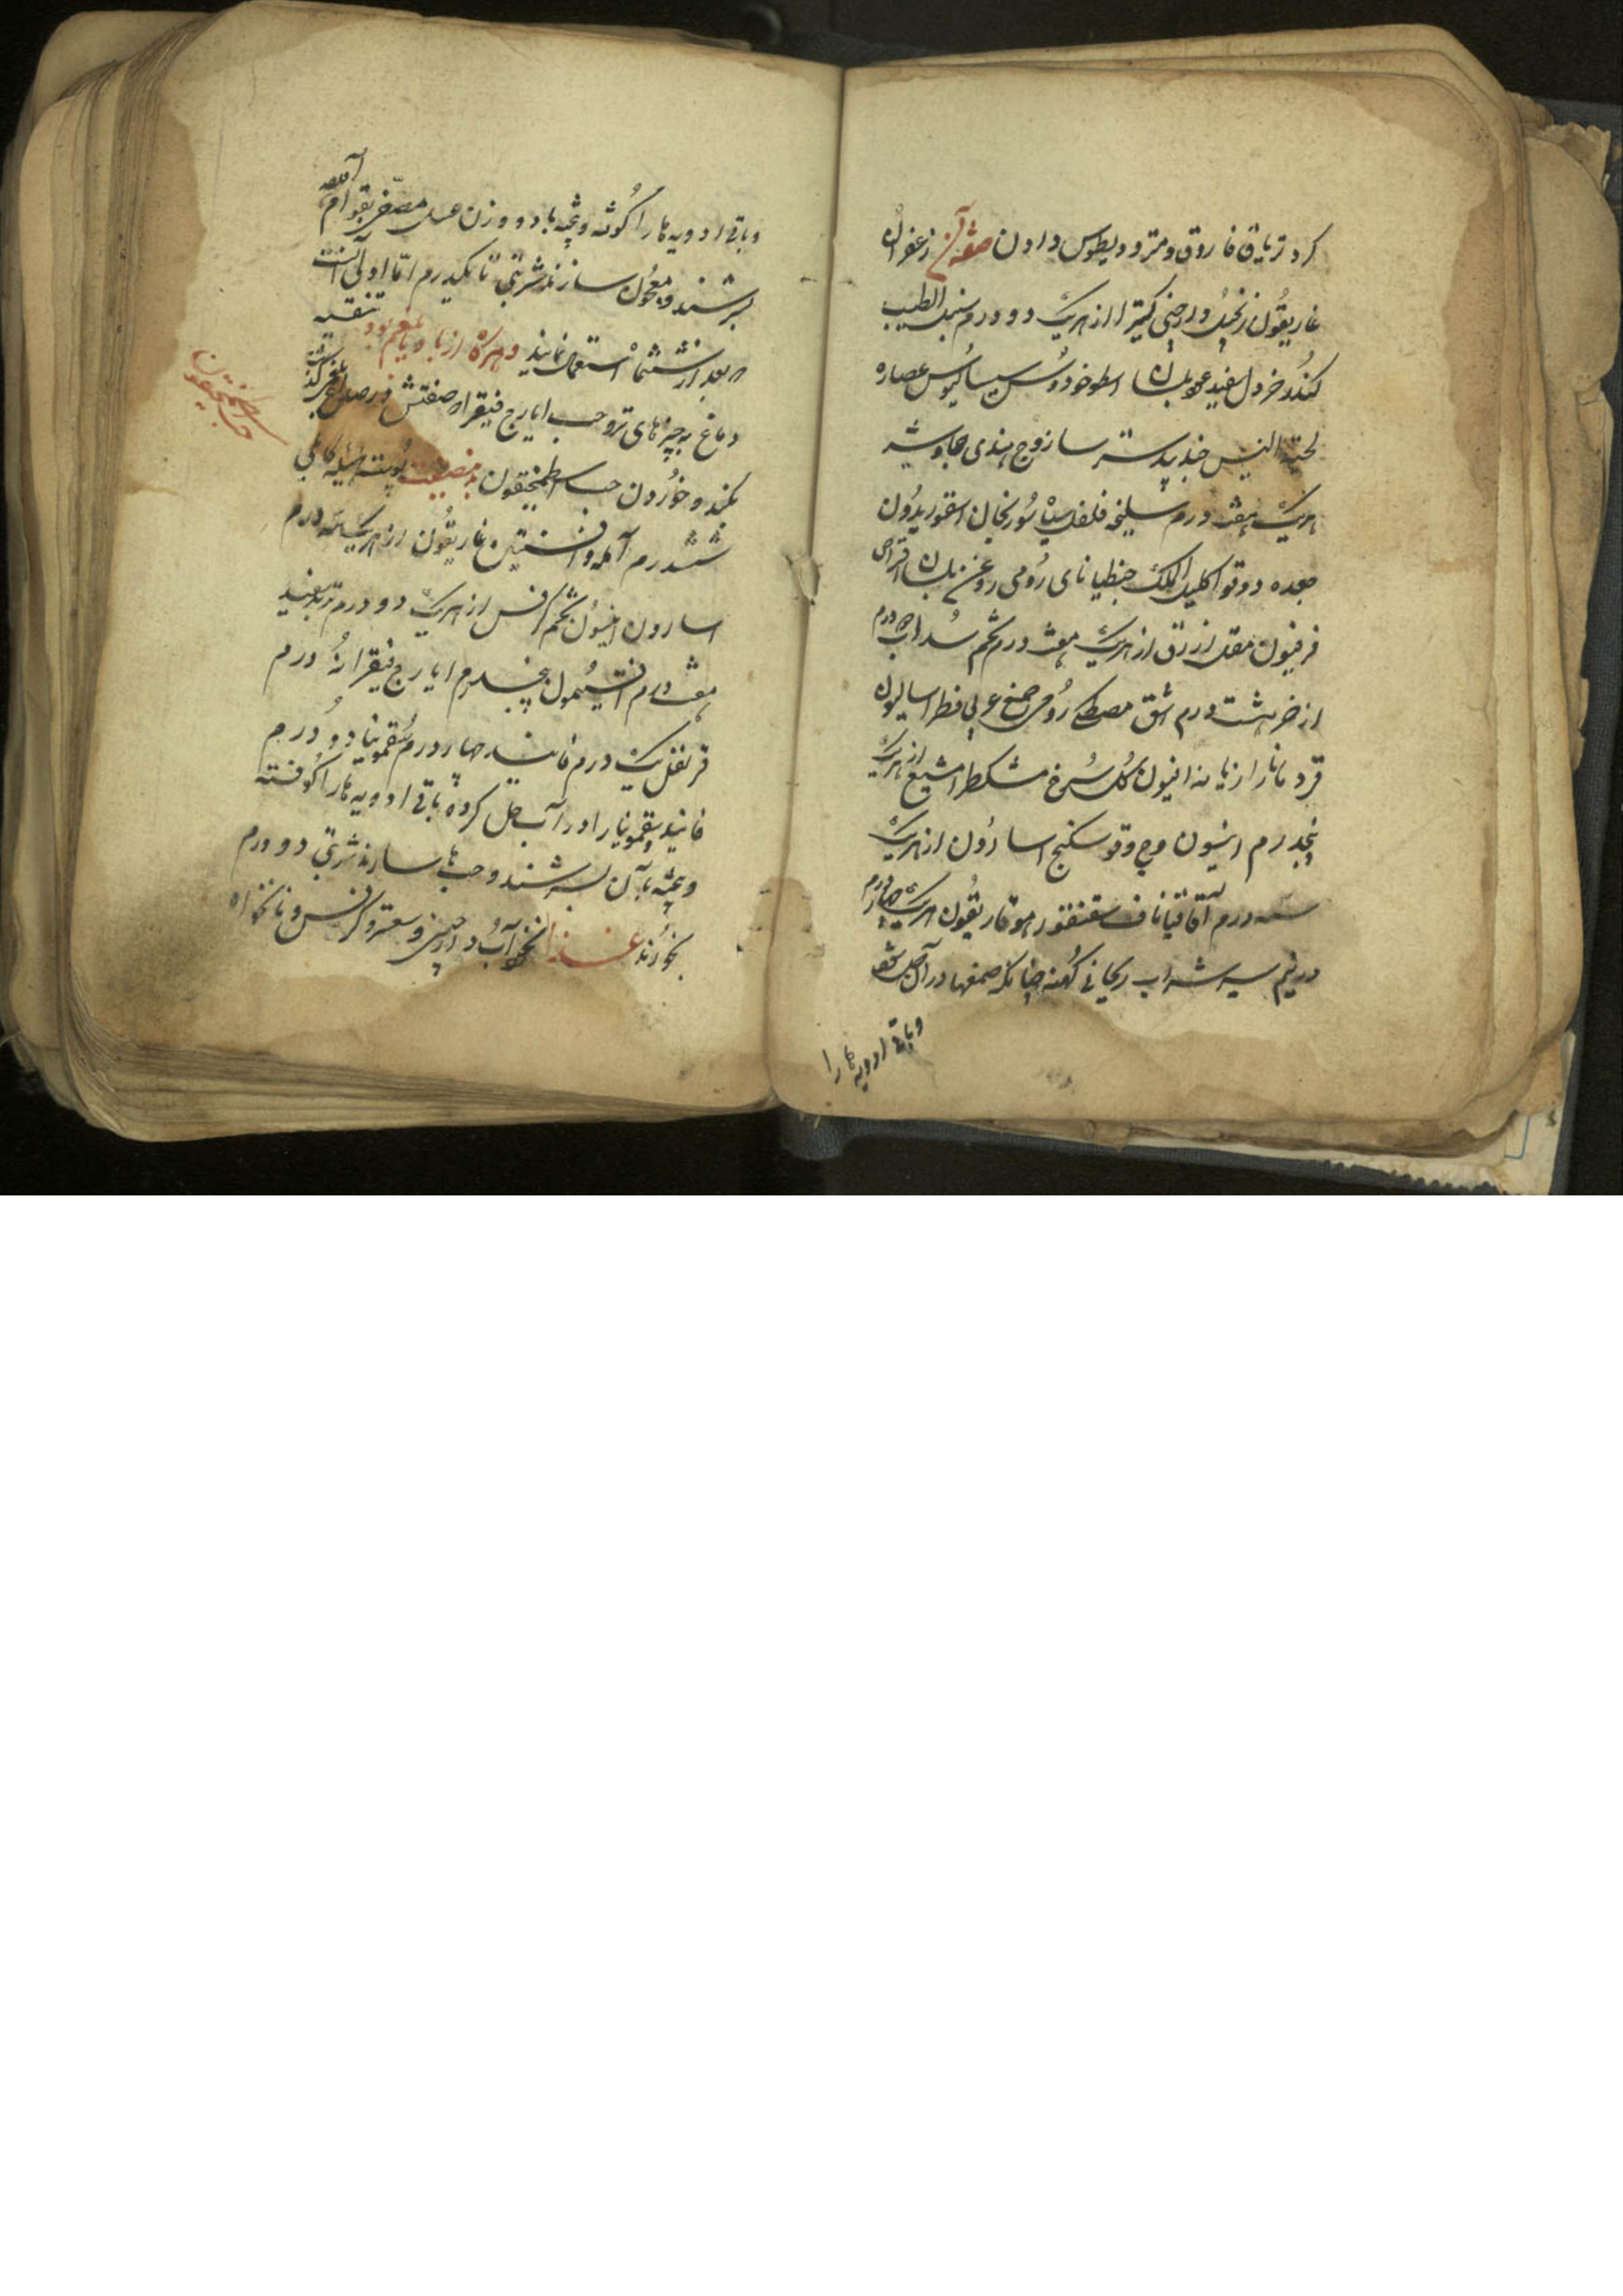 کرد تریاق فاروق و مترودیطوس دادن صفة آن زعفران
غاریقون زنجبیل دارچینی کتیرا از هریک دو درم سنبل الطیب
کندر خردل سفید عود بلسان اسطوخودوس سیسالیوس عصاره
لحیة التیس جندبیدستر سازج هندی جاوشیر
هریک هفت درم سلیخه فلفل سیاه سورنجان اسقوریدون
جعده دوقو اکلیل الملک جنطیانای رومی روغن بلسان اقراص
فرفیون مقل ازرق از هریک هفت درم تخم سداب ده درم
اذخر هشت درم اشق مصطکی رومی صمغ عربی فطراسالیون
قردمانا رازیانه افیون گل سرخ مشکطرامشیع از هریک
پنجدرم انیسون وج وقو سکبنج اسارون از هریک
سه درم اقاقیا ناف سقنقور هوفاریقون هریک چهار درم
درنیم سیر شراب ریحانی کهنه چنانکه صمغها در آن حل شود
و باقی ادویه ها را
و باقی ادویه ها را کوفته و بیخته با دو وزن عسل مصفی بقوام آمده
بسرشند و معجون سازند شربتی تا یکدرم اما اولی آنست
که بعد از ششماه استعمال نمایند و هرگاه از باد و بلغم بود تنقیه
دماغ به چیزهای تر و حب ایارج فیقرا که صفتش در صداع بلغمی گذشت
بکنند و خوردن حب اسطمخیقون بدینصفت پوست هلیله کابلی
ششدرم آمله و افسنتین غاریقون از هریک سه درم
اسارون انیسون تخم کرفس از هریک دو درم تربد سفید
هفت درم افتیمون پنجدرم ایارج فیقرا نه درم
قرنفل یک درم فانید چهار درم سقمونیا دو درم
فانید و سقمونیا را در آب حل کرده باقی ادویه ها را کوفته
و بیخته بآن بسرشند و حبها سازند شربتی دو درم
بخورند غذا نخوداب و دارچینی و سعتر و کرفس و نانخواه
حب اسطمخیقون